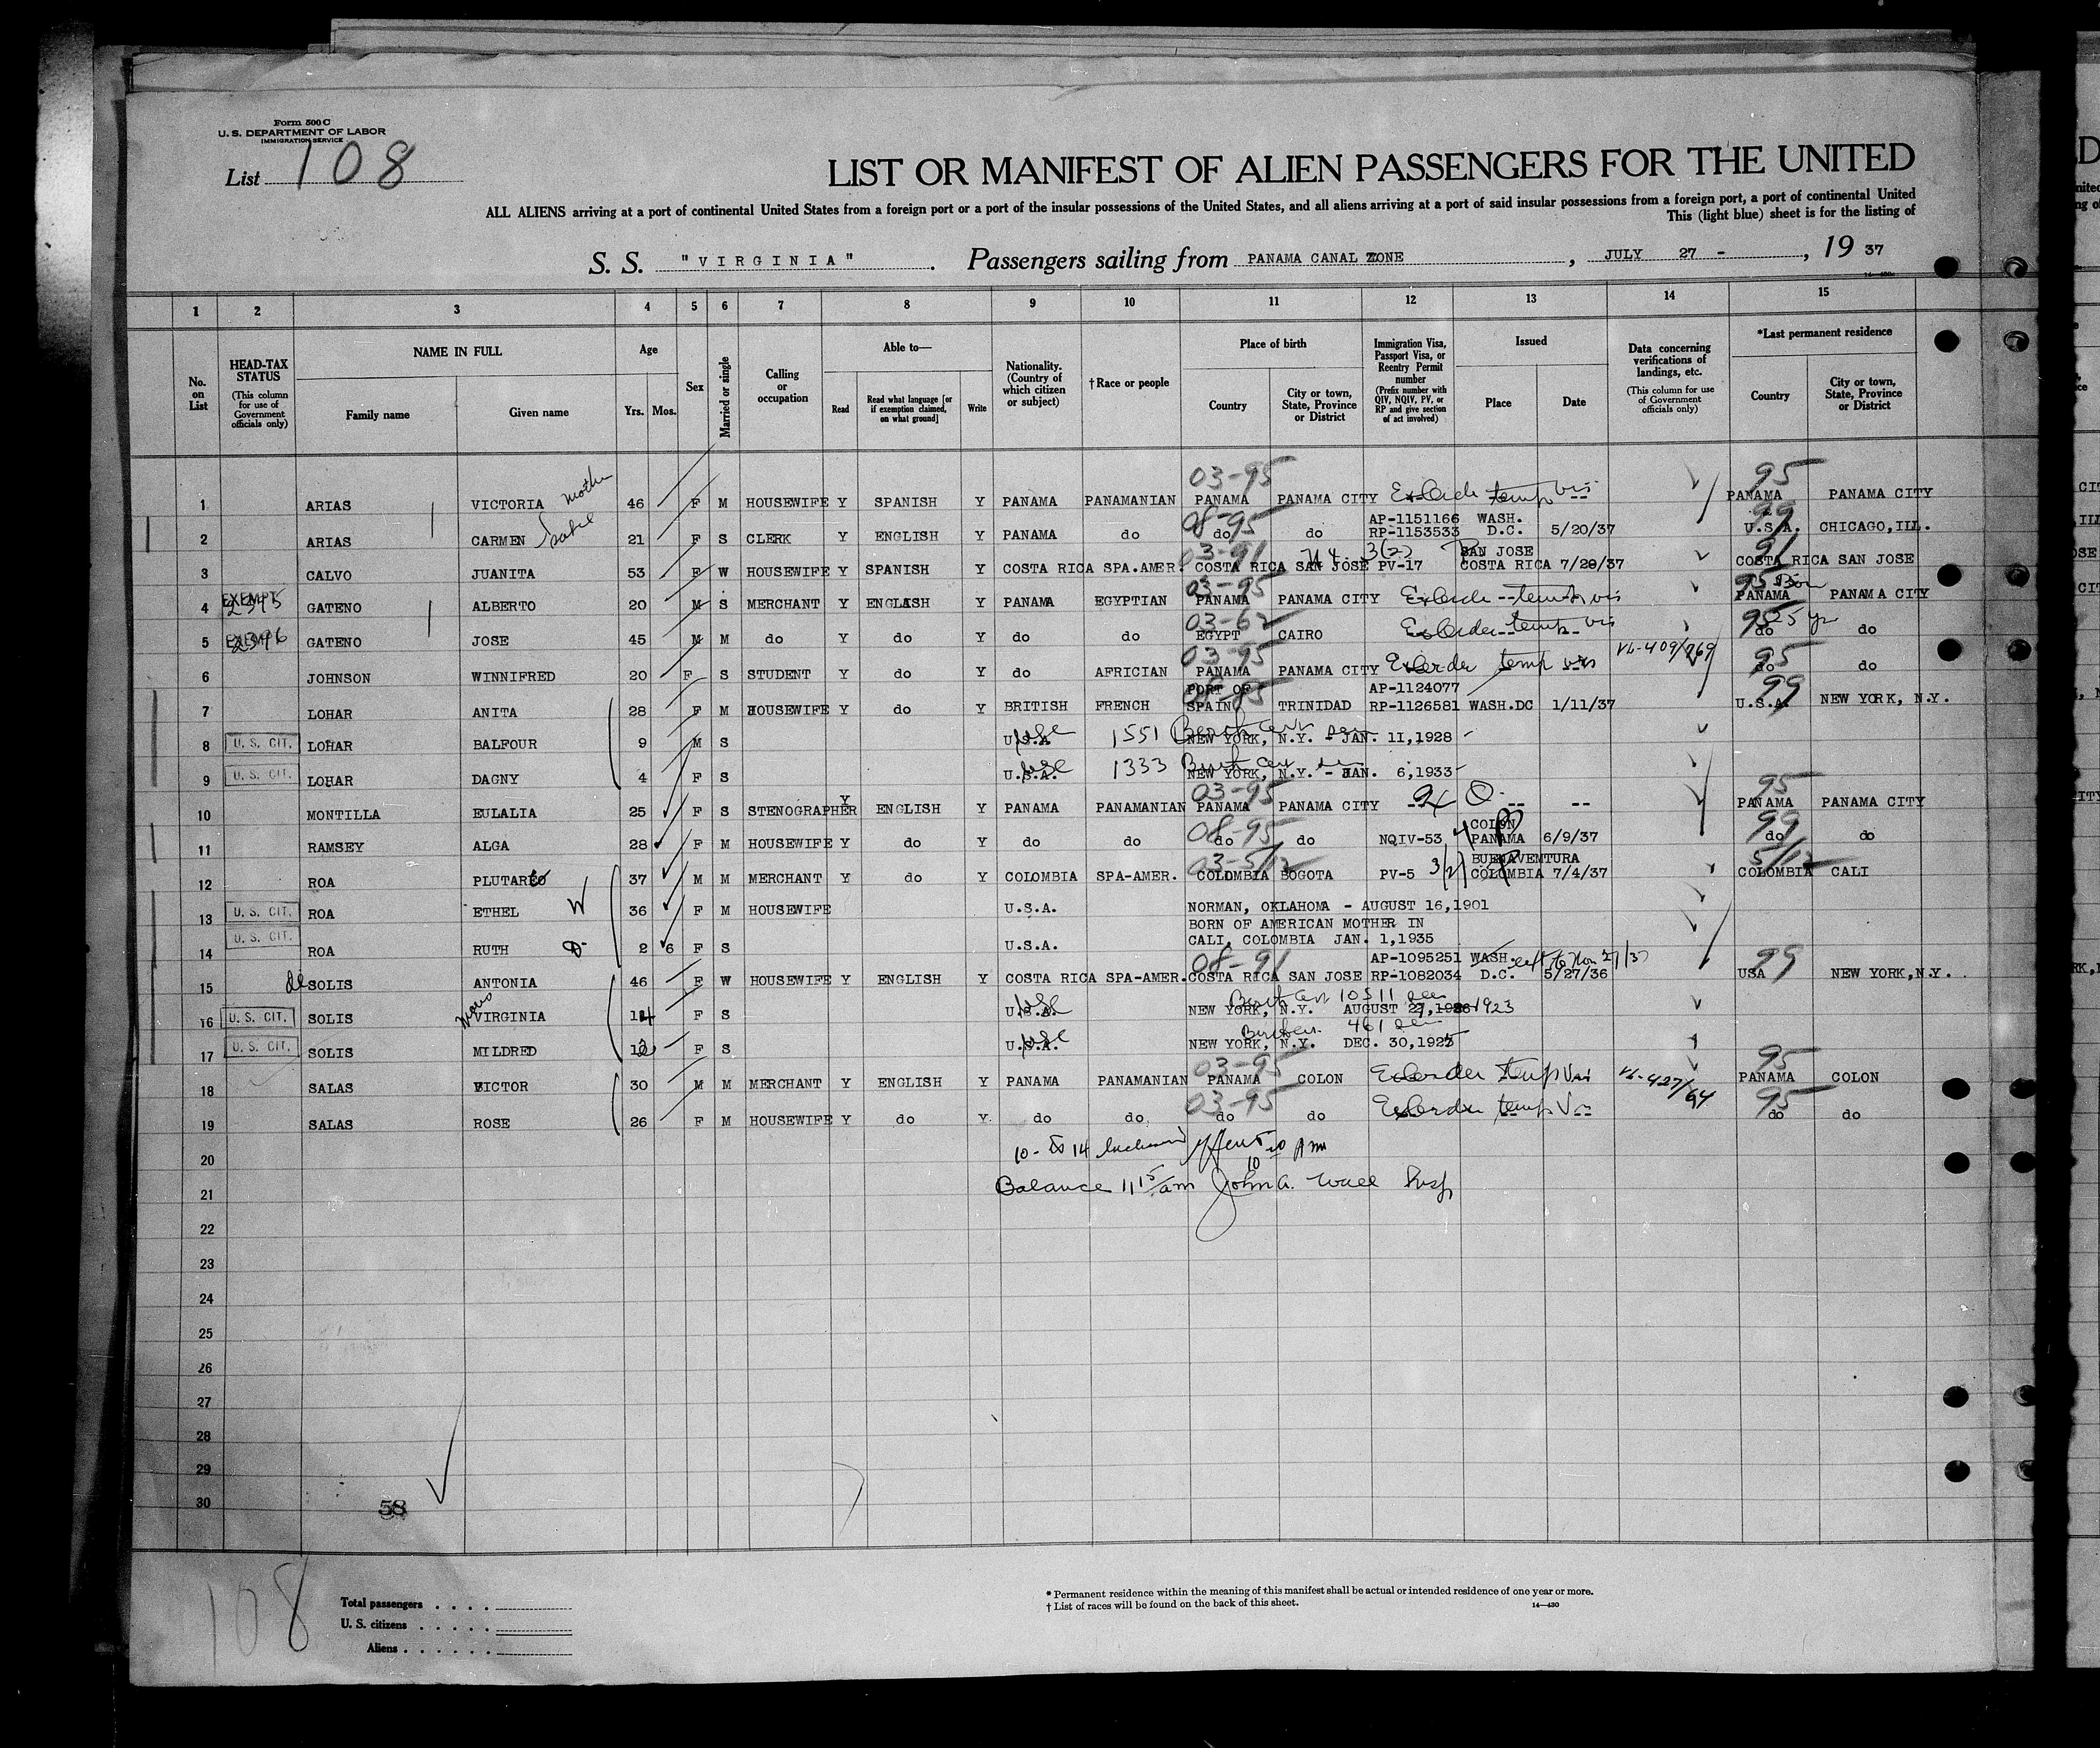 Form 500 C
U. S. DEPARTMENT OF LABOR
IMMIGRATION SERVICE
List 108
LIST OR MANIFEST OF ALIEN PASSENGERS FOR THE UNITED
ALL ALIENS arriving at a port of continental United States from a foreign port or a port of the insular possessions of the United States, and all aliens arriving at a port of said insular possessions from a foreign port, a port of continental United
This (light blue) sheet is for the listing of
S. S. "VIRGINIA". Passengers sailing from PANAMA CANAL ZONE, JULY 27 -, 19 37
1 2 3 4 5 6 7 8 9 10 11 12 13 14 15
No. on List
HEAD-TAX STATUS (This column for use of Government officials only)
NAME IN FULL
Family name Given name
Age
Yrs. Mos.
Sex
Married or single
Calling or occupation
Able to—
Read Read what language [or if exemption claimed, on what ground] Write
Nationality. (Country of which citizen or subject)
†Race or people
Place of birth
Country City or town, State, Province or District
Immigration Visa, Passport Visa, or Reentry Permit number (Prefix number with QIV, NQIV, PV, or RP and give section of act involved)
Issued
Place Date
Data concerning verifications of landings, etc. (This column for use of Government officials only)
*Last permanent residence
Country City or town, State, Province or District
03-95 95
1 ARIAS VICTORIA mother 46 F M HOUSEWIFE Y SPANISH Y PANAMA PANAMANIAN PANAMA PANAMA CITY temp PANAMA PANAMA CITY
08-95 AP-1151166 WASH. 99
2 ARIAS CARMEN 21 F S CLERK Y ENGLISH Y PANAMA do do do RP-1153533 D.C. 5/20/37 U.S.A. CHICAGO, ILL.
03-91 3(2) SAN JOSE 91
3 CALVO JUANITA 53 F W HOUSEWIFE Y SPANISH Y COSTA RICA SPA.AMER. COSTA RICA SAN JOSE PV-17 COSTA RICA 7/20/37 COSTA RICA SAN JOSE
EXEMPT 03-95 95
4 GATENO ALBERTO 20 M S MERCHANT Y ENGLISH Y PANAMA EGYPTIAN PANAMA PANAMA CITY temp PANAMA PANAMA CITY
03-62 95 25 yr
5 EXEMPT GATENO JOSE 45 M M do Y do Y do do EGYPT CAIRO temp do do
03-95 95
6 JOHNSON WINNIFRED 20 F S STUDENT Y do Y do AFRICIAN PANAMA PANAMA CITY temp do do
PORT OF AP-1124077 99
7 LOHAR ANITA 28 F M HOUSEWIFE Y do Y BRITISH FRENCH SPAIN TRINIDAD RP-1126581 WASH.DC 1/11/37 U.S.A. NEW YORK, N.Y.
8 U. S. CIT. LOHAR BALFOUR 9 M S U.S.A. 1551 NEW YORK, N.Y. - JAN. 11,1928
9 U. S. CIT. LOHAR DAGNY 4 F S U.S.A. 1333 NEW YORK, N.Y. - JAN. 6,1933
03-95 95
10 MONTILLA EULALIA 25 F S STENOGRAPHER Y ENGLISH Y PANAMA PANAMANIAN PANAMA PANAMA CITY -- -- PANAMA PANAMA CITY
08-95 COLON 99
11 RAMSEY ALGA 28 F M HOUSEWIFE Y do Y do do do do NQIV-53 PANAMA 6/9/37 do do
BUENAVENTURA
12 ROA PLUTARCO 37 M M MERCHANT Y do Y COLOMBIA SPA-AMER. COLOMBIA BOGOTA PV-5 3(2) COLOMBIA 7/4/37 COLOMBIA CALI
13 U. S. CIT. ROA ETHEL W 36 F M HOUSEWIFE U.S.A. NORMAN, OKLAHOMA - AUGUST 16,1901
BORN OF AMERICAN MOTHER IN
14 U. S. CIT. ROA RUTH D 2 6 F S U.S.A. CALI, COLOMBIA JAN. 1,1935
08-91 AP-1095251 WASH. 99
15 de SOLIS ANTONIA 46 F W HOUSEWIFE Y ENGLISH Y COSTA RICA SPA-AMER. COSTA RICA SAN JOSE RP-1082034 D.C. 5/27/36 USA NEW YORK, N.Y.
16 U. S. CIT. SOLIS VIRGINIA 14 F S U.S.A. NEW YORK, N.Y. AUGUST 1923
17 U. S. CIT. SOLIS MILDRED 12 F S U.S.A. NEW YORK, N.Y. DEC. 30,1925
03-95 95
18 SALAS VICTOR 30 M M MERCHANT Y ENGLISH Y PANAMA PANAMANIAN PANAMA COLON PANAMA COLON
03-95 95
19 SALAS ROSE 26 F M HOUSEWIFE Y do Y do do do do temp do do
20 10 - to 14
21 Balance 11 15/am John A.
22
23
24
25
26
27
28
29
30
58
108
Total passengers
U. S. citizens
Aliens
* Permanent residence within the meaning of this manifest shall be actual or intended residence of one year or more.
† List of races will be found on the back of this sheet. 14—430